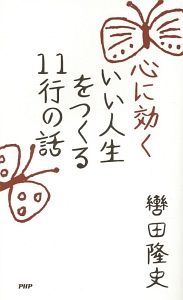 心に効く
いい人生
をつくる
11行の話
轡田隆史
PHP